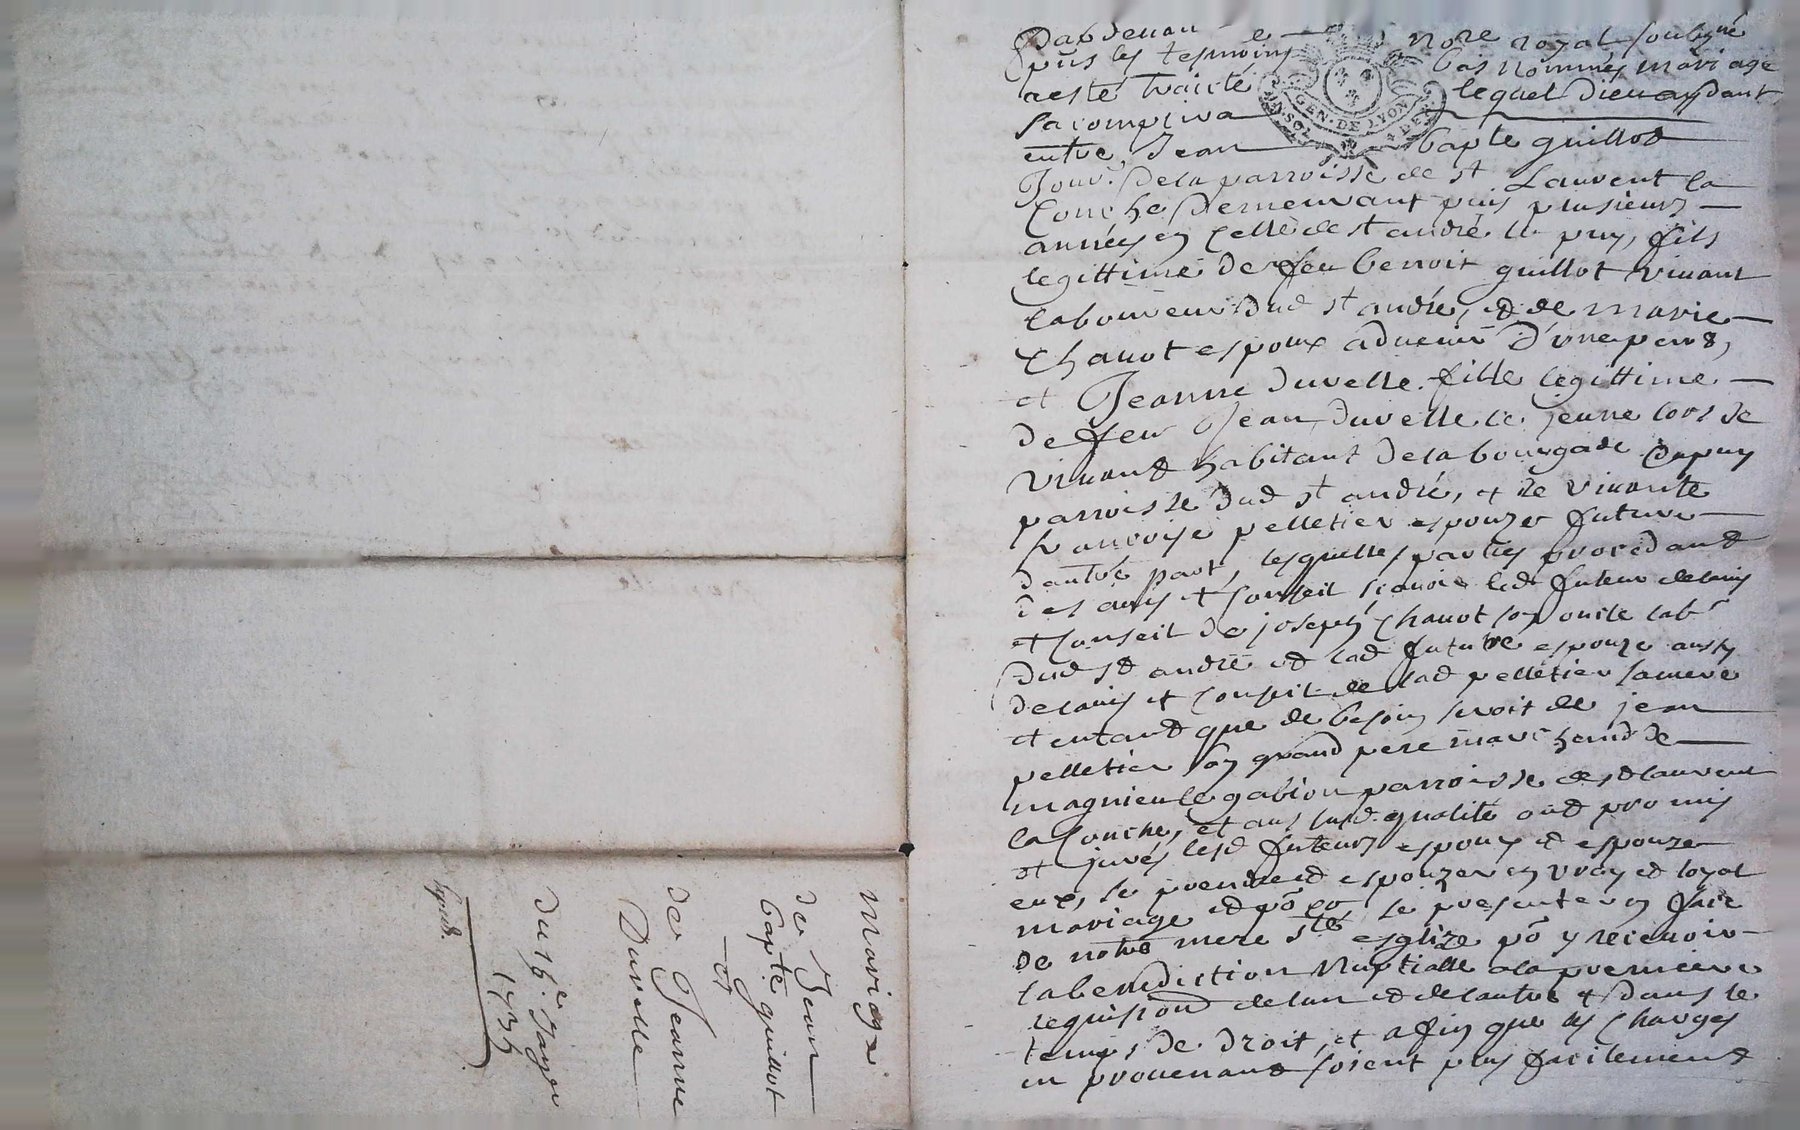 Pardevant le no.re royal soubsigné
puis les tesmoins bas nommés mariage
a esté traicté lequel dieu aydant
s'acomplira
entre Jean bapte guillot
Jour.r de la parroisse de st Laurent la
Conche demeurant puis plusieurs
années en celle de st andré le puy, fils
legittime de feu benoit guillot vivant
laboureur dud st andré, et de marie
Chauot espoux aduenir d'une part,
et Jeanne duvelle fille legittime
de feu Jean duvelle le jeune lors se
vivant habitant de la bourgade du puy
parroisse dud st andré, et de vivante
francoise pelletier espouze future
d'autre part, lesquelles parties procedant
des avis et Conseil scavoir led futeur de lavis
et Conseil de joseph Chauot son oncle lab.r
dud st andré et lad future espouze aussy
de lavis et Conseil de lad pelletier sa mere
et entant que de besoin seroit de jean
pelletier son grand pere marchand de
magnieu le gabion parroisse de st laurent
la Conche, et aus susd. qualité ont promis
et jurés lesd futeurs espoux et espouze
eux, se prendre et espouzer en vray et loyal
mariage et po.r ce, se presenter en face
de notre mere ste esglize po.r y recevoir
la benediction Nuptialle a la premiere
requision de lun et de lautre et dans le
temps de droit, et afin que les charges
en provenant soient plus facilement
GEN. DE LYON
mariage
de Jean
bapte guillot
et
de Jeanne
Duvelle
du 19.e Janver
1735